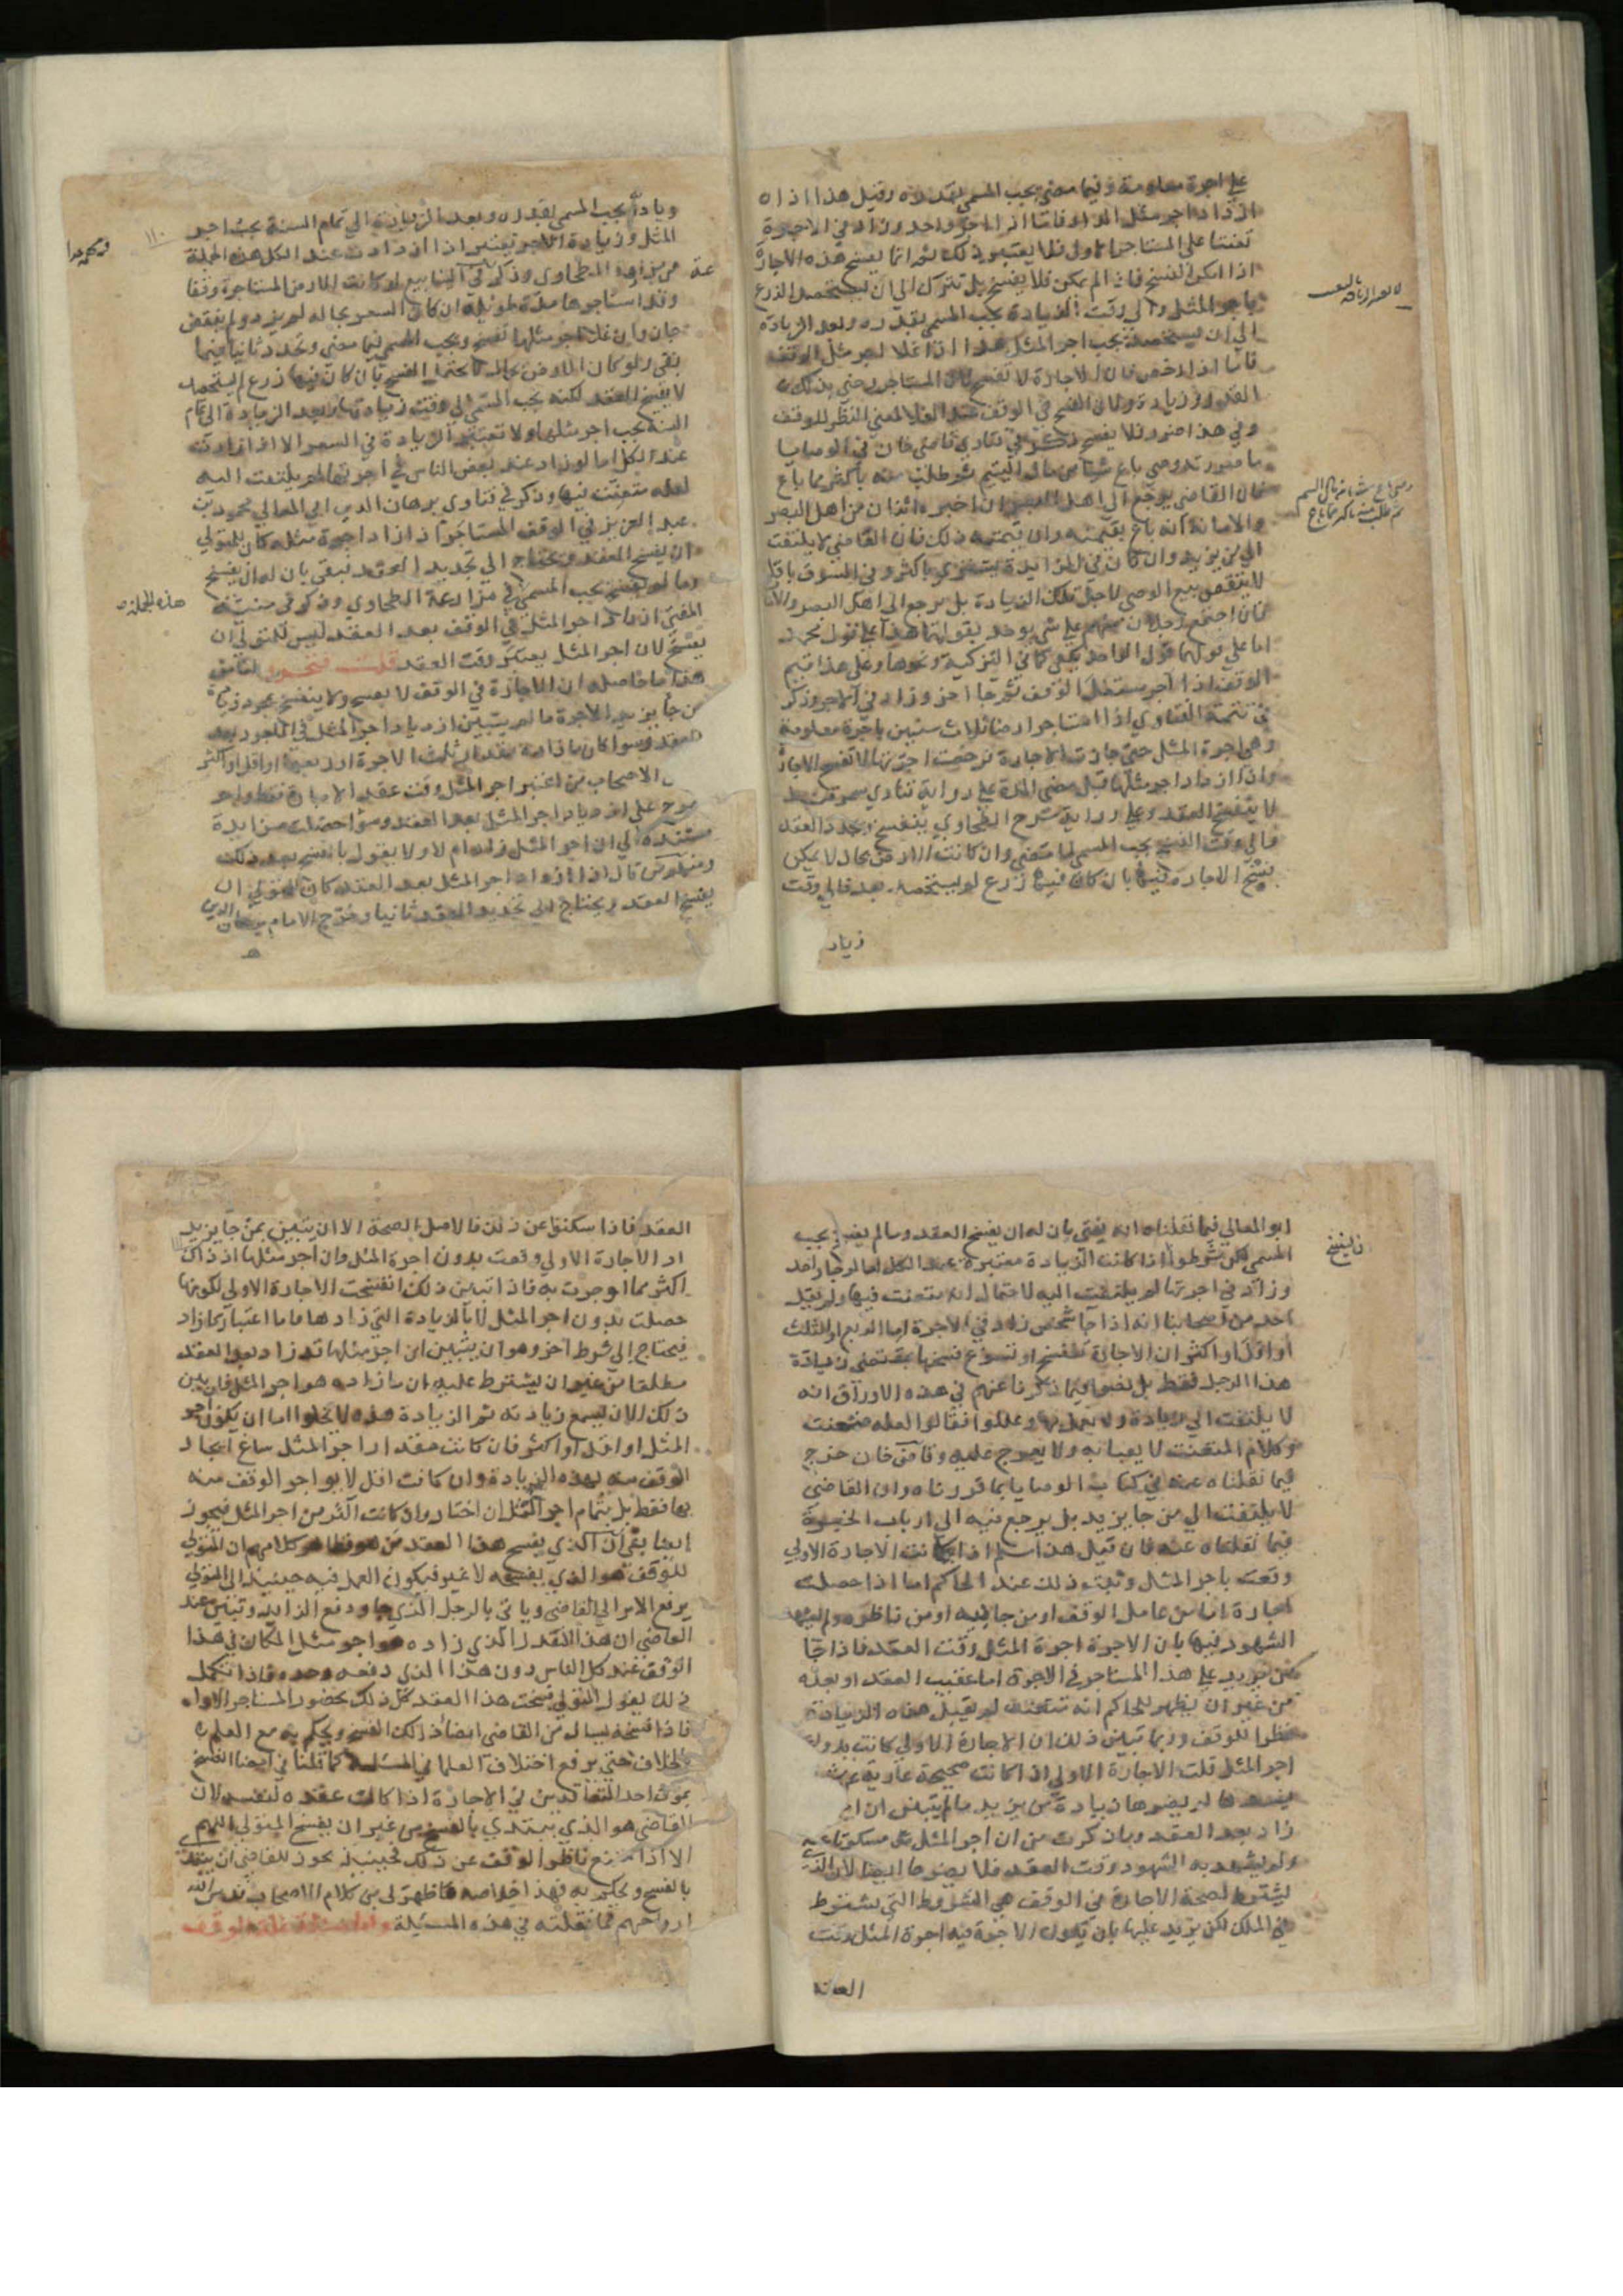 علي اجرة معلومة وفيما مضى يجب المسمي بقدره وقيل هذا اذا
ازداد اجر مثل اما اذا جا واحد وزاد في الاجرة
تعنتا علي المستاجر الاول فلا يعتبر ذلك ثم انما يفسخ هذه الاجارة
اذا امكن الفسخ فان لم يمكن فلا يفسخ بل تترك الي ان يستحصد الزرع
باجر المثل والي وقت الزيادة يجب المسمي بقدره وبعد الزيادة
الي ان يستحصد يجب اجر المثل هذا اذا غلا اجر مثل الوقف
فاما اذا رخص فان الاجارة لا تفسخ لان المستاجر رضي بذلك
القدر وزيادة ولان الفسخ في الوقف عند الغلا لمعني النظر للوقف
وفي هذا ضرر فلا يفسخ وذكر في فتاوي قاضي خان في الوصايا
ما صورته وصي باع شيا من مال اليتيم ثم طلب منه باكثر مما باع
فان القاضي يرجع الي اهل البصر ان اخبره اثنان من اهل البصر
والامانة انه باع بقيمته وان قيمته ذلك فان القاضي لا يلتفت
الي من يزيد وان كان في المزايدة يشتري باكثر وفي السوق باقل
لا ينتقض بيع الوصي لاجل تلك الزيادة بل يرجع الي اهل البصر والامانة
فان اجتمع رجلان منهم علي شي يوخذ بقولهما هذا علي قول محمد
اما علي قولهما قول الواحد يكفي كما في التزكية ونحوها وعلي هذا قيم
الوقف اذا اجر مستغل الوقف ثم جا اخر وزاد في الاجر وذكر
في تتمة الفتاوي اذا استاجر ارضا ثلاث سنين باجرة معلومة
وهي اجرة المثل حتي جازت الاجارة فرخصت اجرتها لا تفسخ الاجارة
واذا ازداد اجر مثلها قبل مضي المدة علي رواية فتاوي سمرقند
لا ينفسخ العقد وعلي رواية شرح الطحاوي ينفسخ ويجدد العقد
والي وقت الفسخ يجب المسمي لما مضي وان كانت الارض بحال لا يمكن
فسخ الاجارة فيها بان كان فيها زرع لم يستحصد بعد فالي وقت
زياد
وصي باع شيا من مال اليتيم
ثم طلب منه باكثر مما باع
ويادة يجب المسمي بقدره وبعد الزيادة الي تمام السنة يجب اجر
المثل وزيادة الاجر تعتبر اذا ازدادت عند الكل هذه الجملة
من مزارعة الطحاوي وذكر في الينابيع لو كانت الارض المستاجرة وقفا
وقد استاجرها مدة طويلة ان كان السعر بحاله لم يزد ولم ينقص
جاز وان غلا اجر مثلها تفسخ ويجب المسمي فيما مضي وتجدد ثانيا فيما
بقي ولو كان الارض بحال لا يحتمل الفسخ بان كان فيها زرع لم يستحصد
لا يفسخ العقد لكنه يجب المسمي الي وقت زيادتها وبعد الزيادة الي تمام
السنة يجب اجر مثلها ولا تعتبر الزيادة في السعر الا اذا ازدادت
عند الكل اما لو زاد عند بعض الناس في اجرتها لم يلتفت اليه
لعله متعنت فيها وذكر في فتاوي برهان الدين ابي المعالي محمود بن
عبد العزيز في الوقف المستاجر اذا ازداد اجرة مثله كان للمتولي
ان يفسخ العقد ويحتاج الي تجديد العقد فيبقي بان له ان يفسخ
وما لم يفسخ يجب المسمي في مزارعة الطحاوي وذكر في منية
المفتي ازداد اجر المثل في الوقف بعد العقد ليس للمتولي ان
يفسخ لان اجر المثل يعتبر وقت العقد قلت فتحرر لنا من
هذا ما حاصله ان الاجارة في الوقف لا تفسخ ولا ينفسخ بمجرد زيادة
من جا يزيد الاجرة ما لم يتبين ازدياد اجر المثل في الماجور بعد
العقد وسوا كان ما زاده مقدار ثلث الاجرة او ربعها او اقل او اكثر
الاصحاب من اعتبر اجر المثل وقت عقد الاجارة فقط ولم
يعرج علي ازدياد اجر المثل بعد العقد وسوا حصلت مزايدة
مستندة الي ان اجر المثل زاد ام لا ولا يقول بالفسخ بعد ذلك
ومنهم من قال اذا ازداد اجر المثل بعد العقد كان للمتولي ان
يفسخ العقد ويحتاج الي تجديد العقد ثانيا وصرح الامام برهان الدين
١١٠
هذه الجملة
ابو المعالي فيما نقلناه انه يفتي بان له ان يفسخ العقد وما لم يفسخ يجب
المسمي لكن شرطوا اذا كانت الزيادة معتبرة عند الكل اما لو جا واحد
وزاد في اجرتها لم يلتفت اليه لاحتمال انه متعنت فيها ولم يقل
احد من اصحابنا انه اذا جا شخص زاد في الاجرة اما الربع او الثلث
او اقل او اكثر ان الاجارة تنفسخ او تسوغ فسخها بمقتضي زيادة
هذا الرجل فقط بل نصوا فيما ذكرنا عنهم في هذه الاوراق انه
لا يلتفت الي زيادة ولا يعمل بها وعللوا فقالوا لعله متعنت
وكلام المتعنت لا يعبا به ولا يعرج عليه وقاضي خان خرج
فيما نقلناه عنه في كتاب الوصايا بما قررناه وان القاضي
لا يلتفت الي من جا يزيد بل يرجع فيه الي ارباب الخبرة
فيما نقلناه عنه فان قيل هذا سلم اذا كانت الاجارة الاولي
وقعت باجر المثل وثبت ذلك عند الحاكم اما اذا حصلت
اجارة اما من عامل الوقف او من جابيه او من ناظره ولم يشهد
الشهود فيها بان الاجرة اجرة المثل وقت العقد فاذا جا
من يزيد علي هذا المستاجر في الاجرة اما عقيب العقد او بعده
من غير ان يظهر للحاكم انه متعنت لم تقبل هذه الزيادة
نظرا للوقف وربما تبين ذلك ان الاجارة الاولي كانت بدون
اجر المثل قلت الاجارة الاولي اذا كانت صحيحة عارية عن
يفسدها لم يضرها زيادة من يزيد ما لم يتبين ان اجر
زاد بعد العقد وما ذكرت من ان اجر المثل مسكوتا عنه
ولم يشهد به الشهود وقت العقد فلا يضرها ايضا لان الذي
يشترط لصحة الاجارة في الوقف هي الشروط التي تشترط
في الملك لكن يزيد عليها بان تكون الاجرة فيه اجرة المثل وقت
العقد
العقد فاذا سكتوا عن ذلك فالاصل الصحة الا ان يتبين بمن جا يزيد
ان الاجارة الاولي وقعت بدون اجرة المثل وان اجر مثلها اذ ذاك
اكثر مما اوجرت به فاذا تبين ذلك انفسخت الاجارة الاولي لكونها
حصلت بدون اجر المثل لا بالزيادة التي زادها واما اعتبار ما زاد
فيحتاج الي شرط اخر وهو ان يتبين ان اجر مثلها قد زاد بعد العقد
مطلقا من غير ان يشترط عليه ان ما زاده هو اجر المثل فان بين
ذلك الان يسمع زيادته ثم الزيادة هذه لا يخلوا اما ان يكون اجر
المثل او اقل او اكثر فان كانت مقدار اجر المثل ساغ ايجار
الوقف منه بهذه الزيادة وان كانت اقل لا يواجر الوقف منه
بها فقط بل بتمام اجر المثل ان اختار وان كانت اكثر من اجر المثل فيجوز
ايضا بقي ان الذي يفسخ هذا العقد من هو فظاهر كلامهم ان المتولي
للوقف هو الذي يفسخه لا غير فيكون العمل فيه حينئذ ان المتولي
يرفع الامر الي القاضي وياتي بالرجل الذي جا ودفع الزايد وتبين عند
القاضي ان هذا القدر الذي زاده هو اجر مثل المكان في هذا
الوقف عند كل الناس دون هذا الذي دفعه وحده فاذا تكمل
ذلك يقول المتولي فسخت هذا العقد كل ذلك بحضور المستاجر الاول
فاذا فسخه يسال من القاضي امضا ذلك الفسخ ويحكم به مع العلم
بالخلاف حتي يرفع اختلاف العلما في المسئلة كما قلنا في امضا الفسخ
بموت احد المتعاقدين في الاجارة اذا كانت عقده لنفسه لان
القاضي هو الذي يبتدي بالفسخ من غير ان يفسخ المتولي اللهم
الا اذا امتنع ناظر الوقف عن ذلك فحينئذ يجوز للقاضي ان ينفذ
بالفسخ ويحكم به فهذا خلاصة ما ظهر لي من كلام الاصحاب قدس الله
ارواحهم فيما نقلته في هذه المسئلة